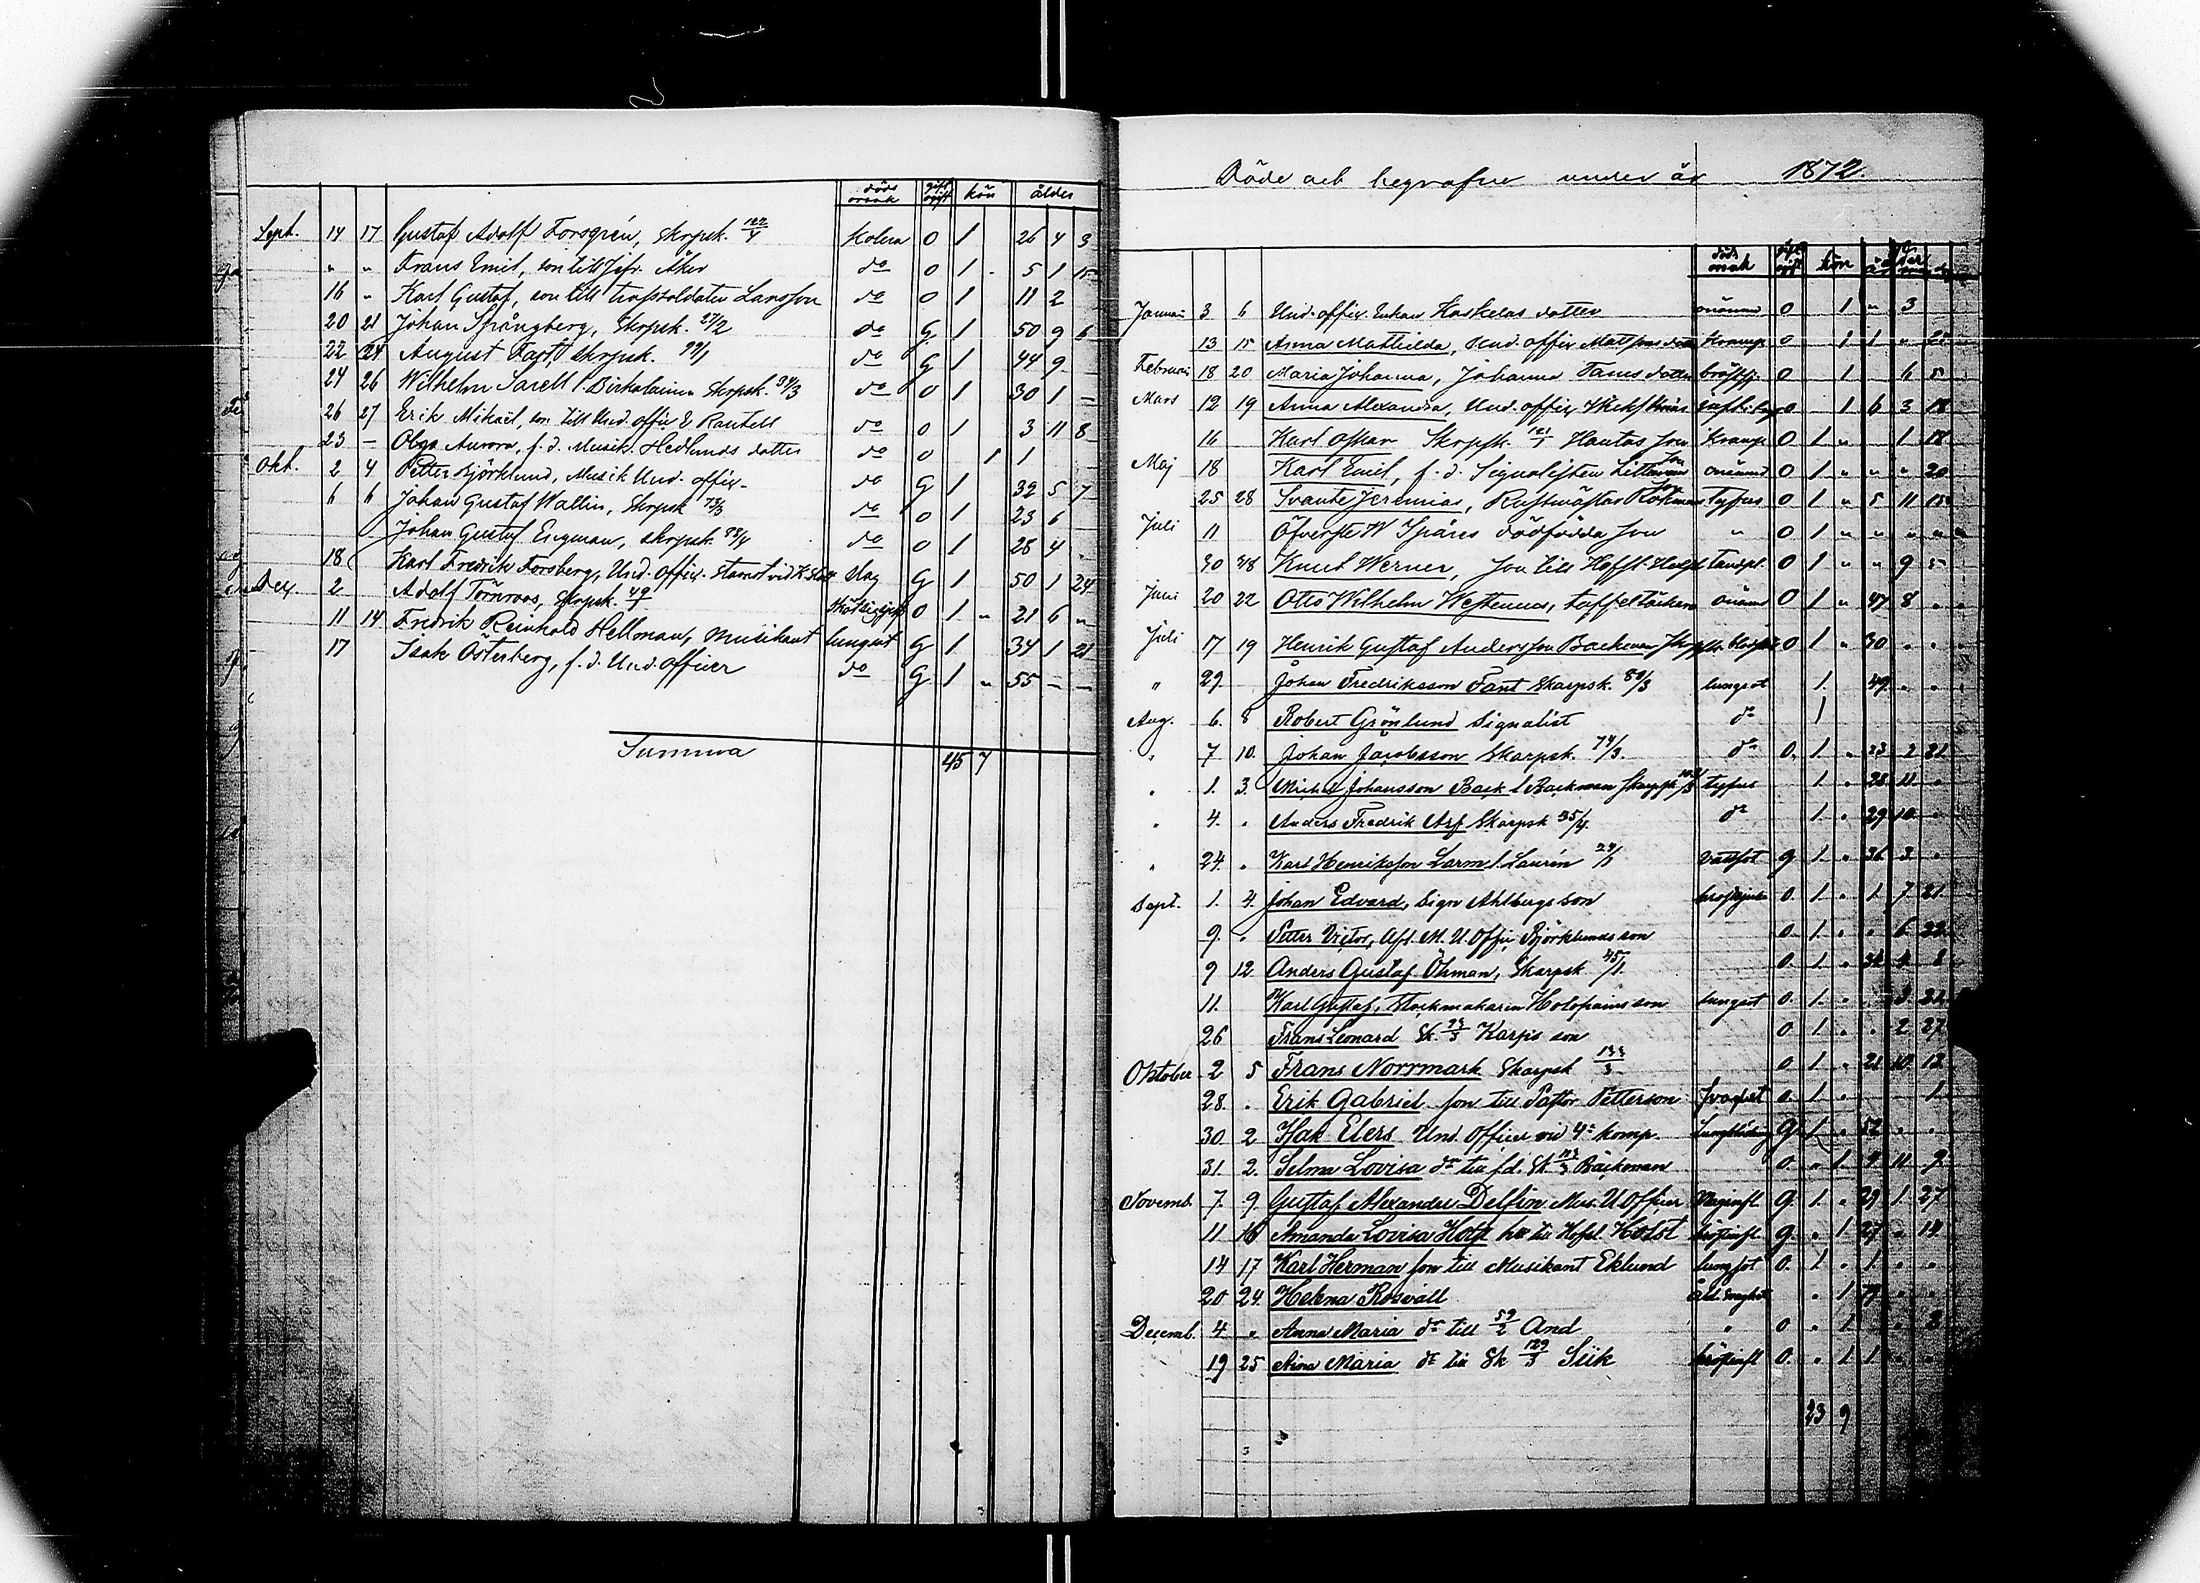 döds orsak gift ogift kön ålder
Sept. 14 17 Gustaf Adolf Forsgrén, skrpsk. 122/4 Kolera O 1 26 4 3
" " Frans Emil, son till Åker do O 1 - 5 1 15
16 " Karl Gustaf, son till trossoldaten Larsson do O 1 11 2
20 21 Johan Spångberg, Skrpsk. 27/2 do G 1 50 9 6
22 24 August Fast, skrpsk. do G 1 44 9 -
24 26 Wilhelm Sarell l. skrpsk. 34/3 do O 1 30 1 -
26 27 Erik Mikael, son till Und. offic E Rantell do O 1 3 11 8
23 - Olga Aurora, f. d. Musik. Hedlunds dotter do O 1 1
Okt. 2 4 Petter Björklund, Musik Und. offic. do G 1 32 5 7
6 6 Johan Gustaf Wallin, Skrpsk 73/3 do O 1 23 6 -
Johan Gustaf Engman, skrpsk. do O 1 28 4
18 Karl Fredrik Forsberg, Und. offic. Slag G 1 50 1 24
Dec. 2 Adolf Törnroos, skrpsk. 49/1 O 1 " 21 6 "
11 14 Fredrik Reinhold Hellman, musikant lungsot G 1 34 1 21
17 Isak Österberg, f. d. Und. officer do G 1 " 55 - -
Summa 45 7
Döde och begrafne under år 1872.
döds orsak gift ogift kön ålder
Januari 3 6 Und. offic. Enkan Kaskelas dotter onämnd O 1 " 3
13 15 Anna Mathilda, Und. offic Mattsons dotter Kramp O 1 1 " 25
Februari 18 20 Maria Johanna, Johanna dotter O 1 6 5
Mars 12 19 Anna Alexandra, Und. offic O 1 6 3 18
16 Karl Oskar Skrpsk. 121/1 Hautas son Kramp O 1 " 1 18
Maj 18 Karl Emil, f. d. Signalisten son onämnd O 1 " " " 20
25 28 Svante Jeremias, son Tyfus O 1 " 5 11 15
Juli 11 Öfverste W Spåres dödfödda son " O 1 " " " "
30 Knut Werner, son till O 1 " " 9 5
Juni 20 22 Otto Wilhelm Westerlund, taffeltäckare onämnd O 1 " 47 8 " "
Juli 17 19 Henrik Gustaf Andersson Backman O 1 " 30 " " "
" 29 Johan Fredriksson Fant Skarpsk. 89/3 lungsot 1. 49 " " "
Aug. 6. 8 Robert Grönlund Signalist do 1
" 7 10. Johan Jacobsson Skarpsk. 74/3. do O. 1. " 23 2 21
" 1. 3. Mickel Johansson Back l. Backman Skarpsk typfus 1. " 28 11 "
" 4. " Anders Fredrik Asp Skarpsk 35/4. do 1. " 29 10
" 24. " Karl Henriksson Larm l. Laurén 29/1 Vattsot g 1. " 36 3 "
Sept. 1. 4. Johan Edvard, Sign Ahlbergs son O. 1. " 1. 7 21.
9. " Petter Victor, Afl. M. U. Offic Björklunds son O. 1. " " 6 22
9 12 Anders Gustaf Öhman, Skarpsk 45/1. O. 1. "
11. Karl Gustaf, Holopains son lungsot O. 1. " 3 21.
26 Frans Leonard Sk. 93/3 Karpis son O 1. " " 2 27
Oktober 2 5 Frans Norrmark Skarpsk 133/3 O 1. " 21 10 12
28. " Erik Gabriel son till Pastor Petterson Svaghet O. 1. " 1.
30 2 Isak Elers Und. Officer vid 4e komp. g. 1. " 52 " "
31. 2. Selma Lovisa dr till f.d. Sk 113/3 Bäckman O. " 1. 9 11 9
Novemb. 7. 9. Gustaf Alexander Delfin Mus. U. Officer g. 1. " 29 1. 27
11 16 Amanda Lovisa Holst hu till Kapt. Holst bröstinfl. g. " 1 27 " 14
14 17 Karl Herman son till Musikant Eklund lungsot O. 1 " 1. " "
20 24. Helena Rosvall " 1 " "
Decemb. 4 " Anna Maria dr till 59/2 And " O " 1
19 25 Aina Maria dr till Sk 129/3 Siik bröstinfl O. " 1 1. " "
23 9